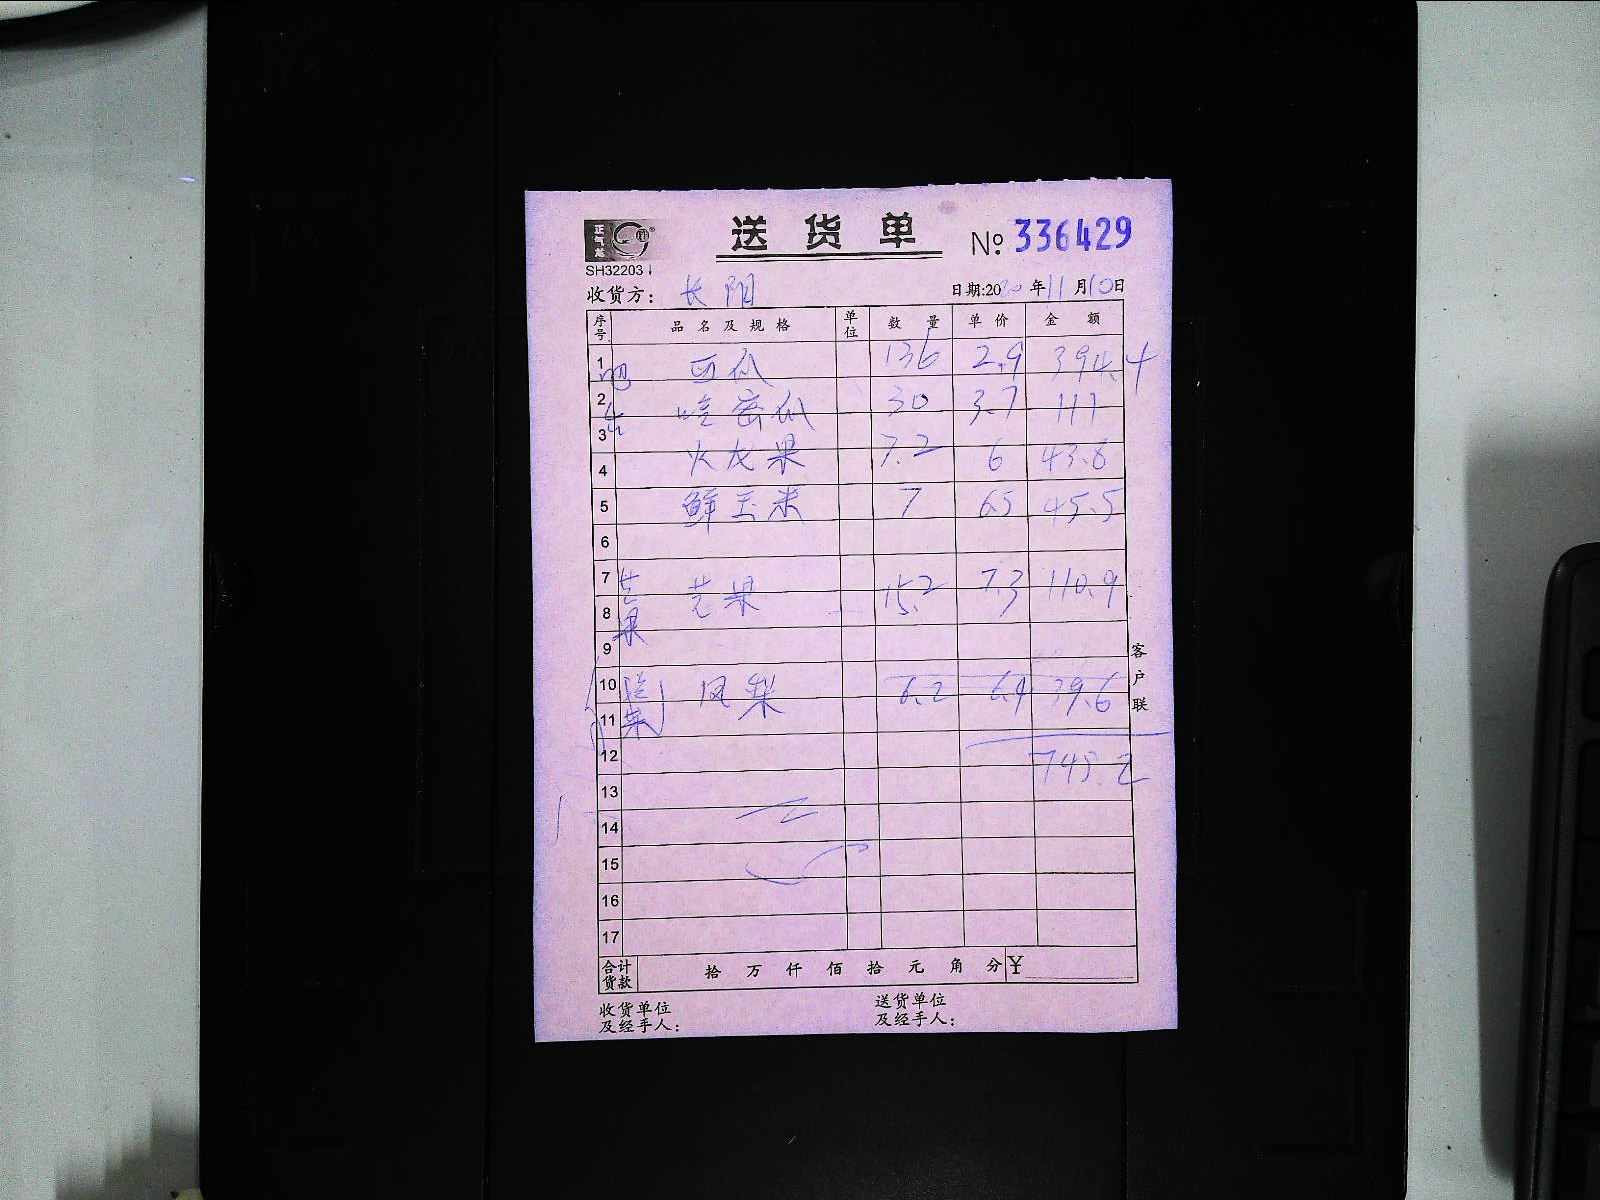 正气龙
送货单
№ 336429
SH32203
收货方: 长阳
日期:2020年11月10日
序号 品名及规格 单位 数量 单价 金额
1 吧 西瓜 136 2.9 394.4
2 哈密瓜 30 3.7 111
3 台
4 火龙果 7.2 6 43.8
5 鲜玉米 7 6.5 45.5
6
7 芒果 芒果 15.2 7.3 110.9
8
9
10 凤梨 6.2 6.4 39.6
11 菜
12 745.2
13
14
15
16
17
合计货款 拾 万 仟 佰 拾 元 角 分 ¥
收货单位及经手人:
送货单位及经手人:
客户联